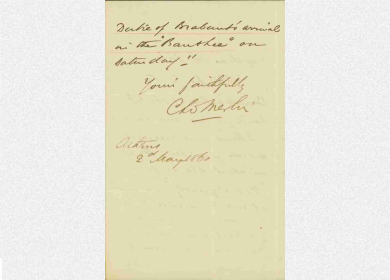 Duke of Brabant's arrival
in the "Banshee" on
Saturday."
Yours faithfully
Chs Merlin
Athens
2nd May 1860